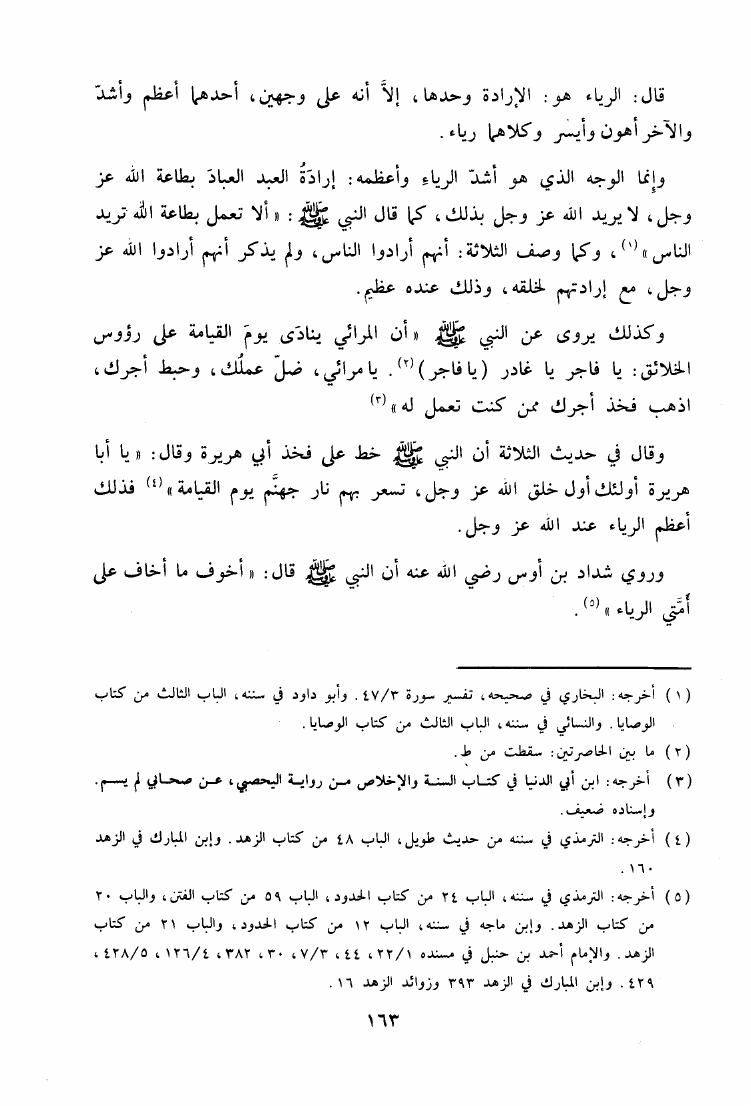 قال: الرياء هو: الإرادة وحدها، إلاَّ أنه على وجهين، أحدهما أعظم وأشدّ
والآخر أهون وأيسر وكلاهما رياء.
وإنما الوجه الذي هو أشدّ الرياءِ وأعظمه: إرادَةُ العبد العبادَ بطاعة الله عز
وجل، لا يريد الله عز وجل بذلك، كما قال النبي ﷺ: «ألا تعمل بطاعة الله تريد
الناس»(١)، وكما وصف الثلاثة: أنهم أرادوا الناس، ولم يذكر أنهم أرادوا الله عز
وجل، مع إرادتهم لخلقه، وذلك عنده عظيم.
وكذلك يروى عن النبي ﷺ «أن المرائي ينادَى يومَ القيامة على رؤوس
الخلائق: يا فاجر يا غادر (يا فاجر)(٢). يا مرائي، ضلّ عملُك، وحبط أجرك،
اذهب فخذ أجرك ممن كنت تعمل له»(٣)
وقال في حديث الثلاثة أن النبي ﷺ خط على فخذ أبي هريرة وقال: «يا أبا
هريرة أولئك أول خلق الله عز وجل، تسعر بهم نار جهنَّم يوم القيامة»(٤) فذلك
أعظم الرياء عند الله عز وجل.
وروي شداد بن أوس رضي الله عنه أن النبي ﷺ قال: «أخوف ما أخاف على
أُمَّتي الرياء»(٥).
(١) أخرجه: البخاري في صحيحه، تفسير سورة ٤٧/٣. وأبو داود في سننه، الباب الثالث من كتاب
الوصايا. والنسائي في سننه، الباب الثالث من كتاب الوصايا.
(٢) ما بين الحاصرتين: سقطت من ط.
(٣) أخرجه: ابن أبي الدنيا في كتـاب السنة والإخلاص مـن روايـة اليحصبي، عـن صحـابي لم يسـم.
وإسناده ضعيف.
(٤) أخرجه: الترمذي في سننه من حديث طويل، الباب ٤٨ من كتاب الزهد. وإبن المبارك في الزهد
١٦٠.
(٥) أخرجه: الترمذي في سننه، الباب ٢٤ من كتاب الحدود، الباب ٥٩ من كتاب الفتن، والباب ٢٠
من كتاب الزهد. وإبن ماجه في سننه، الباب ١٢ من كتاب الحدود، والباب ٢١ من كتاب
الزهد. والإمام أحمد بن حنبل في مسنده ٢٢/١، ٤٤، ٧/٣، ٣٠، ٣٨٢، ١٢٦/٤، ٤٢٨/٥،
٤٢٩. وإبن المبارك في الزهد ٣٩٣ وزوائد الزهد ١٦.
١٦٣